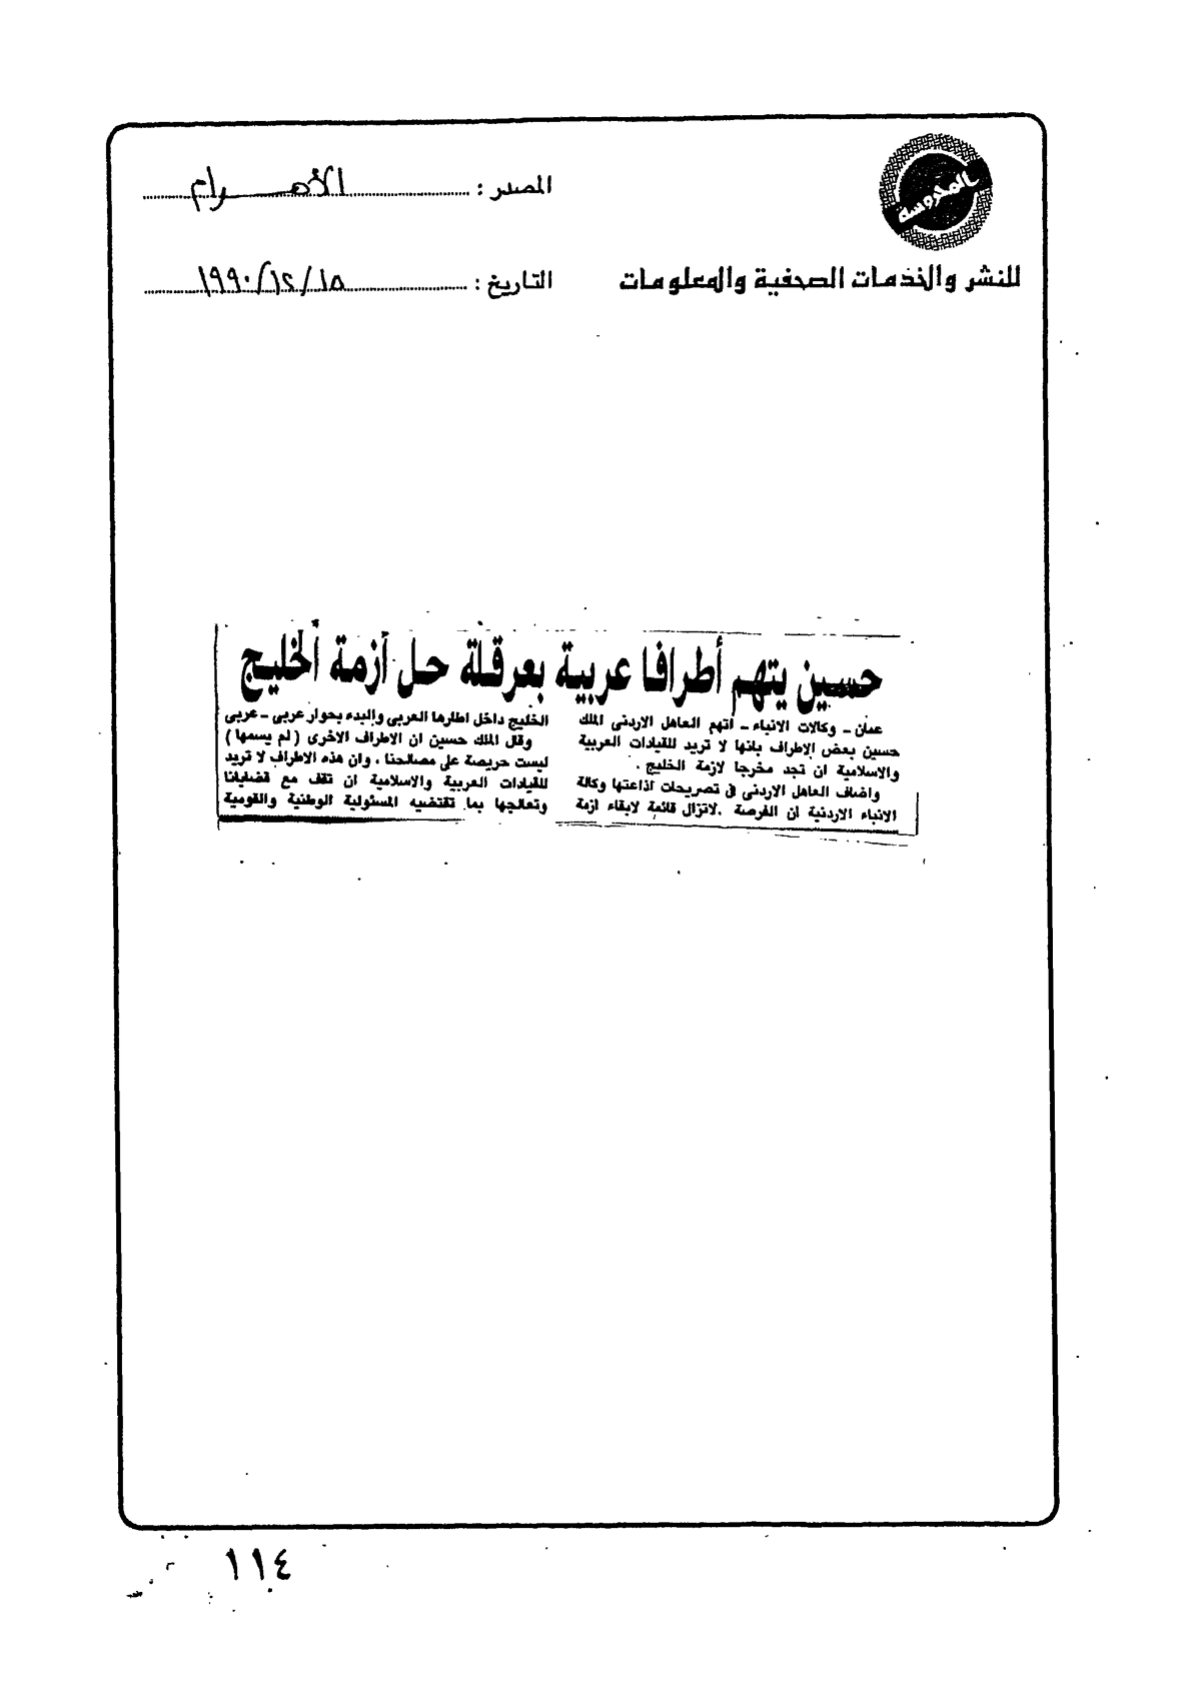 المحروسة
للنشر والخدمات الصحفية والمعلومات
المصدر : الأهرام
التاريخ : ١٩٩٠/١٢/١٥
حسين يتهم أطرافا عربية بعرقلة حل أزمة الخليج
عمان ـ وكالات الانباء ـ اتهم العاهل الاردنى الملك
حسين بعض الاطراف بانها لا تريد للقيادات العربية
والاسلامية ان تجد مخرجا لازمة الخليج .
واضاف العاهل الاردنى فى تصريحات اذاعتها وكالة
الانباء الاردنية ان الفرصة لاتزال قائمة لابقاء ازمة
الخليج داخل اطارها العربى والبدء بحوار عربى ـ عربى
وقال الملك حسين ان الاطراف الاخرى ( لم يسمها )
ليست حريصة على مصالحنا ، وان هذه الاطراف لا تريد
للقيادات العربية والاسلامية ان تقف مع قضايانا
وتعالجها بما تقتضيه المسئولية الوطنية والقومية
١١٤